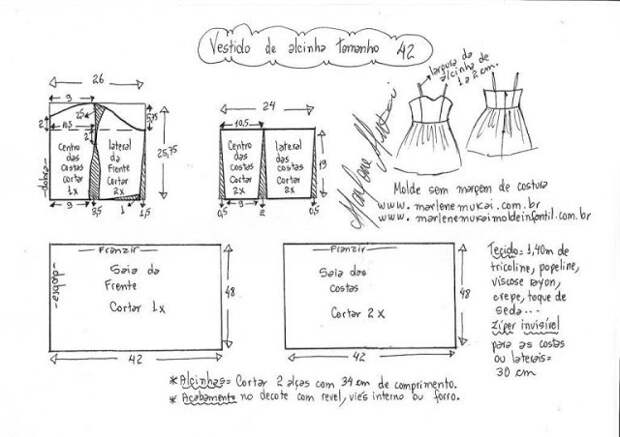 Vestido de alcinha tamanho 42
largura da
alcinha de
1 a 2 cm.
26
9
25
2
10,5
5,75
25,75
Centro
das
costas
Cortar
1x
lateral
da
Frente
Cortar
2x
-dobra-
9
3,5
1
1,5
24
10,5
Centro
das
costas
Cortar
2x
lateral
das
costas
Cortar
2x
19
0,5
9
2
0,5
Marlene Mukai
Molde sem margem de costura
www.marlenemukai.com.br
www.marlenemukaimoldeinfantil.com.br
-Franzir-
Saia da
Frente
Cortar 1x
-dobra-
48
42
-Franzir-
Saia das
costas
Cortar 2x
48
42
Tecido= 1,40m de
tricoline, popeline,
viscose rayon,
crepe, toque de
seda...
Zíper invisível
para as costas
ou laterais=
30 cm
*Alcinhas= Cortar 2 alças com 34 cm de comprimento.
*Acabamento no decote com revel, viés interno ou forro.